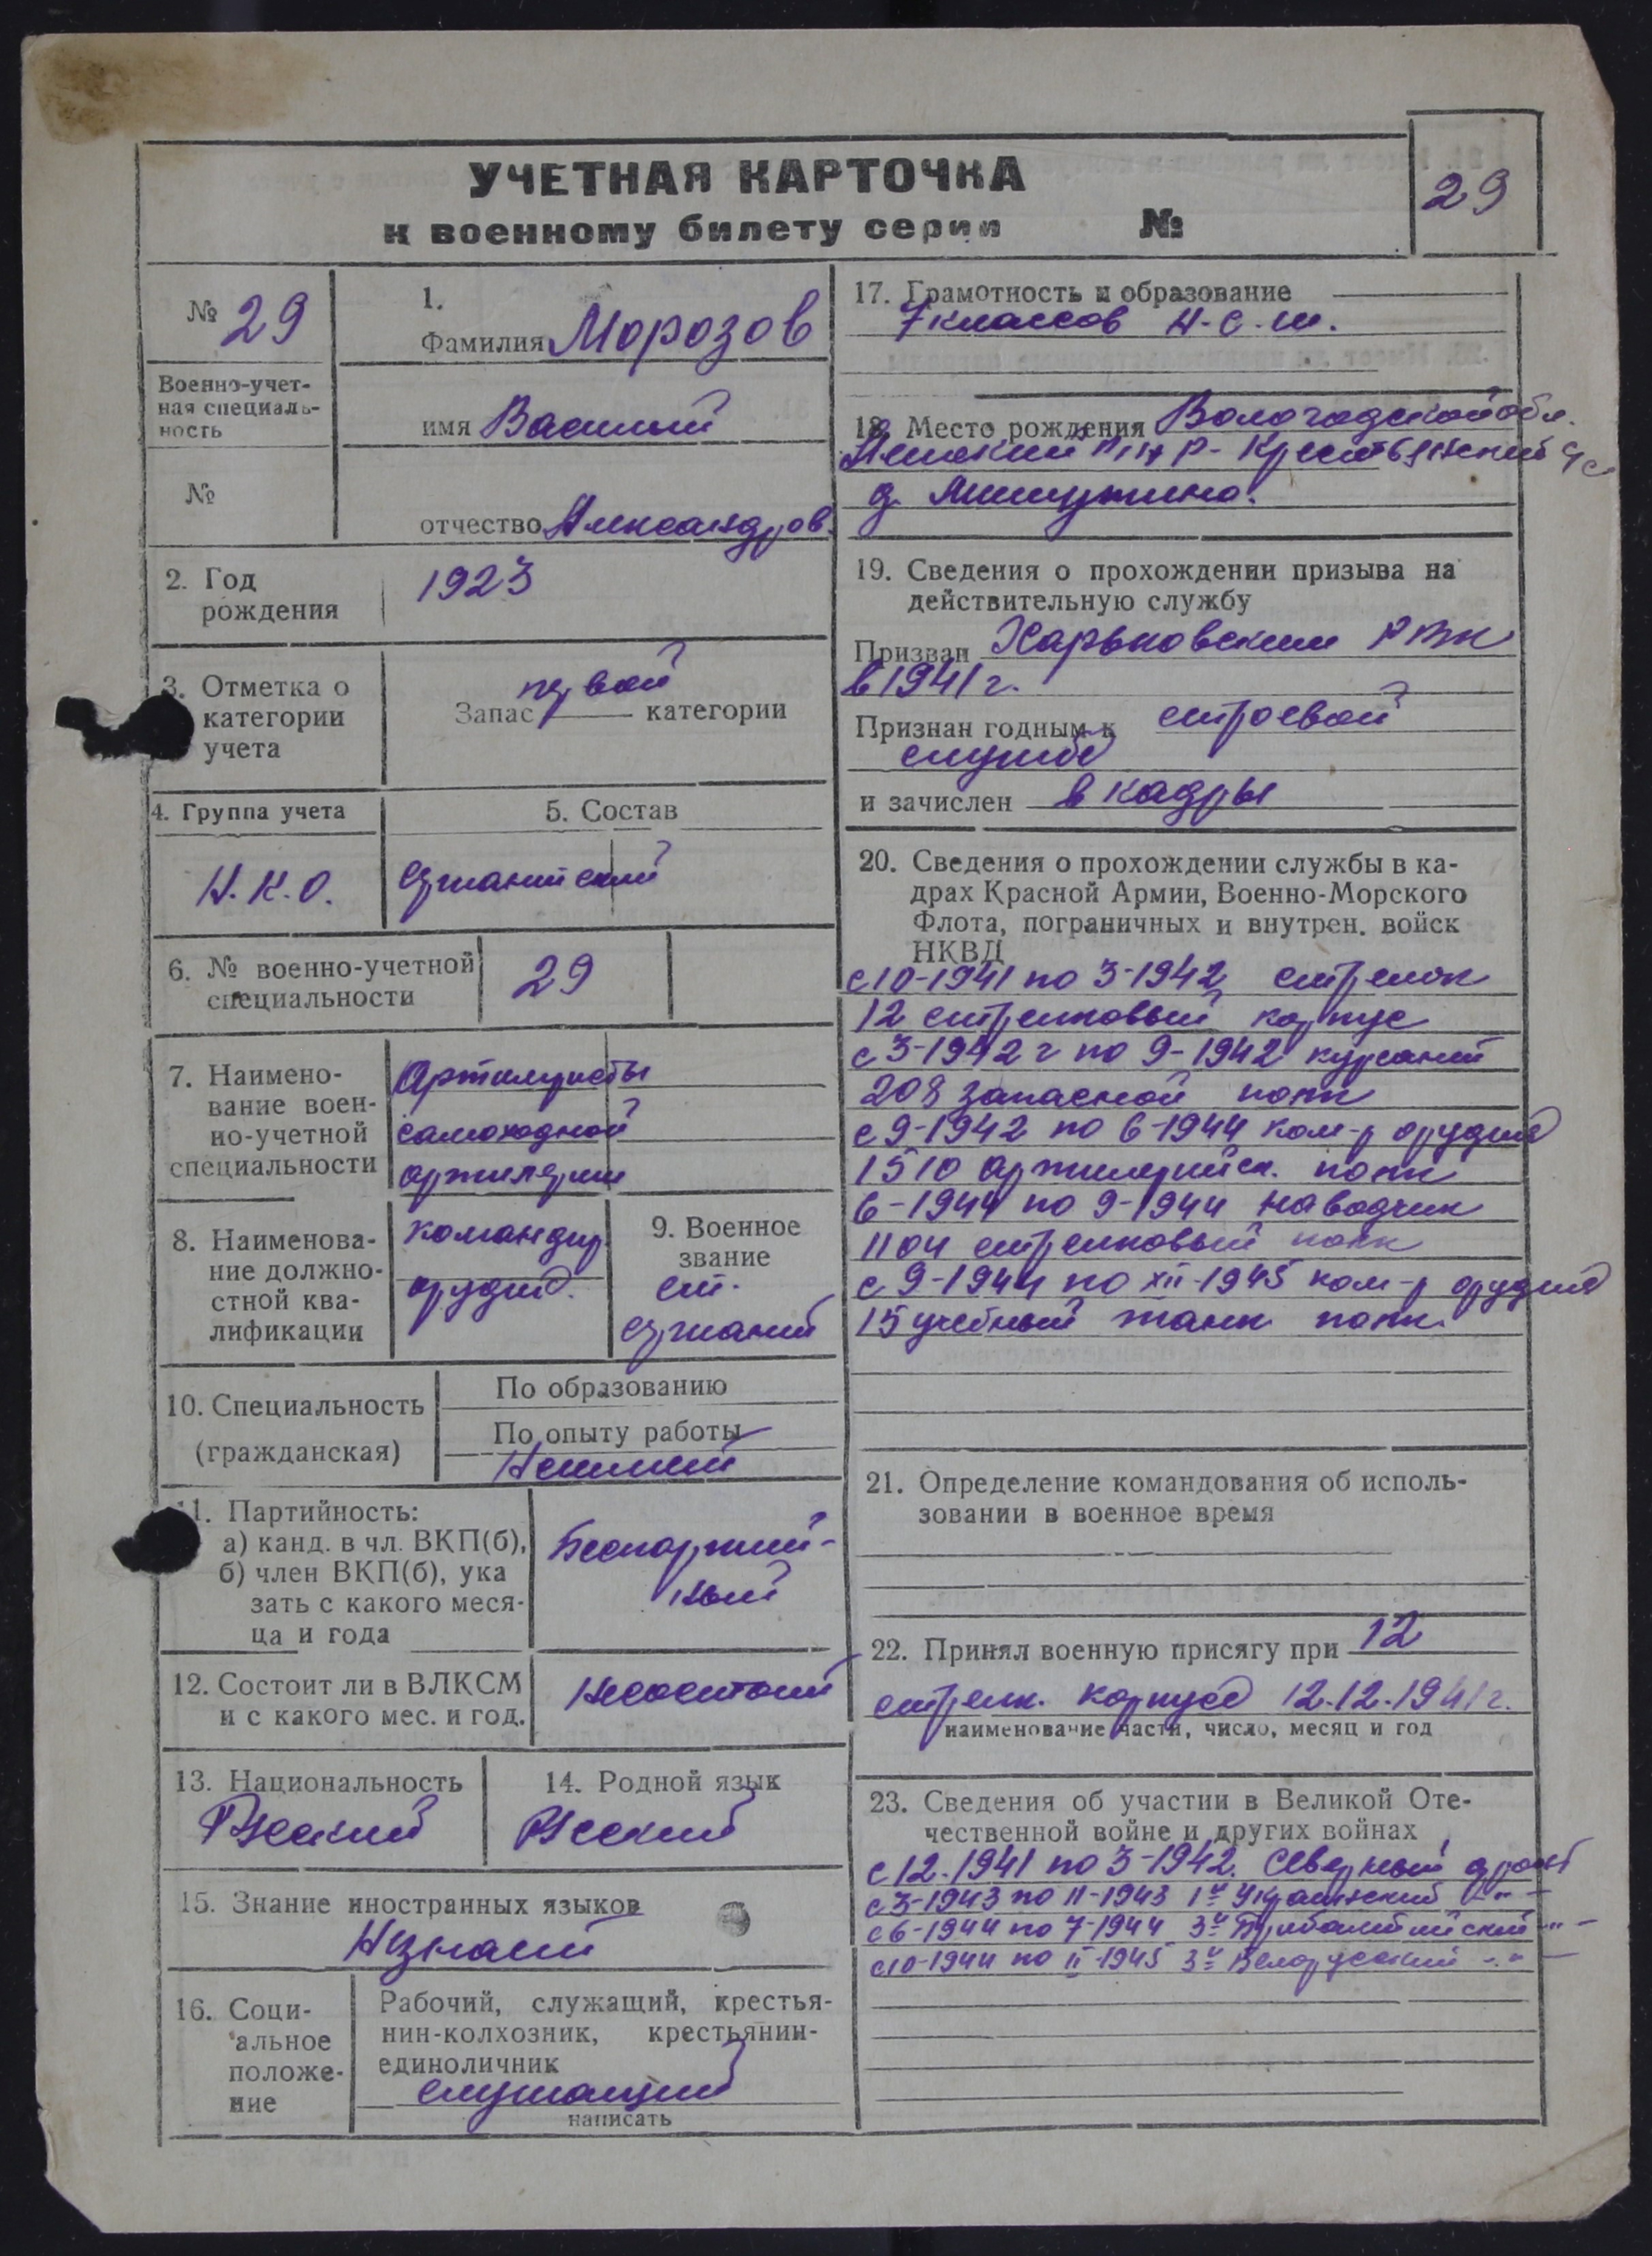 УЧЕТНАЯ КАРТОЧКА
к военному билету серии №
29
№ 29
Военно-учет-
ная специаль-
ность
№
1.
Фамилия Морозов
имя Василий
отчество Александров.
2. Год
рождения
1923
3. Отметка о
категории
учета
первой
Запас категории
4. Группа учета
Н.К.О.
5. Состав
сержантский
6. № военно-учетной
специальности
29
7. Наимено-
вание воен-
но-учетной
специальности
Артилеристы
самоходной
артилерии
8. Наименова-
ние должно-
стной ква-
лификации
командир
орудия.
9. Военное
звание
ст.
сержант
10. Специальность
(гражданская)
По образованию
По опыту работы
11. Партийность:
а) канд. в чл. ВКП(б),
б) член ВКП(б), ука
зать с какого меся-
ца и года
Беспартий-
ный
12. Состоит ли в ВЛКСМ
и с какого мес. и год.
Несостоит
13. Национальность
Русский
14. Родной язык
Русский
15. Знание иностранных языков
Незнает
16. Соци-
альное
положе-
ние
Рабочий, служащий, крестья-
нин-колхозник, крестьянин-
единоличник
служащий
написать
17. Грамотность и образование
7 классов Н-С-Ш.
18. Место рождения Вологодской обл.
р- Крестьянский с/с
д.
19. Сведения о прохождении призыва на
действительную службу
Призван Харьковским РВК
в 1941 г.
Признан годным к строевой
службе
и зачислен в кадры
20. Сведения о прохождении службы в ка-
драх Красной Армии, Военно-Морского
Флота, пограничных и внутрен. войск
НКВД
с 10-1941 по 3-1942 стрелок
12 стрелковый корпус
с 3-1942 г по 9-1942 курсант
208 запасной полк
с 9-1942 по 6-1944 ком-р орудия
1510 артилерийск. полк
6-1944 по 9-1944 наводчик
1104 стрелковый полк
с 9-1944 по XII-1945 ком-р орудия
15 учебный танк полк.
21. Определение командования об исполь-
зовании в военное время
22. Принял военную присягу при 12
стрелк. корпусе 12.12.1941 г.
наименование части, число, месяц и год
23. Сведения об участии в Великой Оте-
чественной войне и других войнах
с 12.1941 по 3-1942. Северный фронт
с 3-1943 по 11-1943 1й Украинский -"-
с 6-1944 по 7-1944 3й Прибалтийский -"-
с 10-1944 по II-1945 3й Белорусский -"-